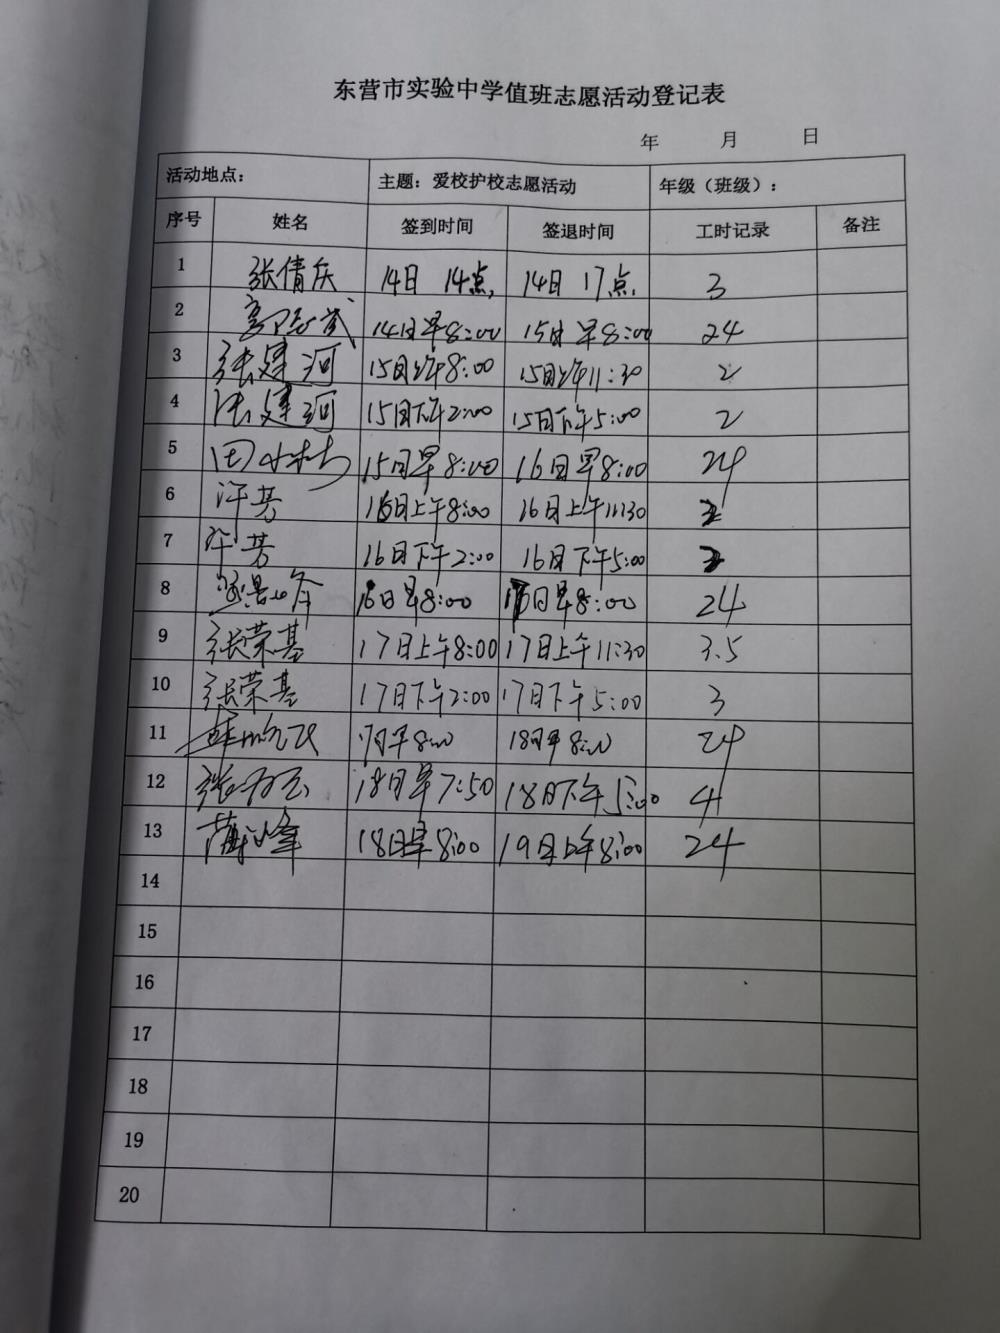 东营市实验中学值班志愿活动登记表
年 月 日
活动地点： 主题：爱校护校志愿活动 年级（班级）：
序号 姓名 签到时间 签退时间 工时记录 备注
1 张倩 14日 14点, 14日 17点, 3
2 14日早8:00 15日早8:00 24
3 张建河 15日上午8:00 15日上午11:30 2
4 张建河 15日下午2:00 15日下午5:00 2
5 15日早8:00 16日早8:00 24
6 许芳 16日上午8:00 16日上午11:30
7 许芳 16日下午2:00 16日下午5:00
8 16日早8:00 日早8:00 24
9 张荣基 17日上午8:00 17日上午11:30 3.5
10 张荣基 17日下午2:00 17日下午5:00 3
11 17日早8:00 18日早8:00 24
12 张 18日早7:50 18日下午5:00 4
13 峰 18日早8:00 19日上午8:00 24
14
15
16
17
18
19
20